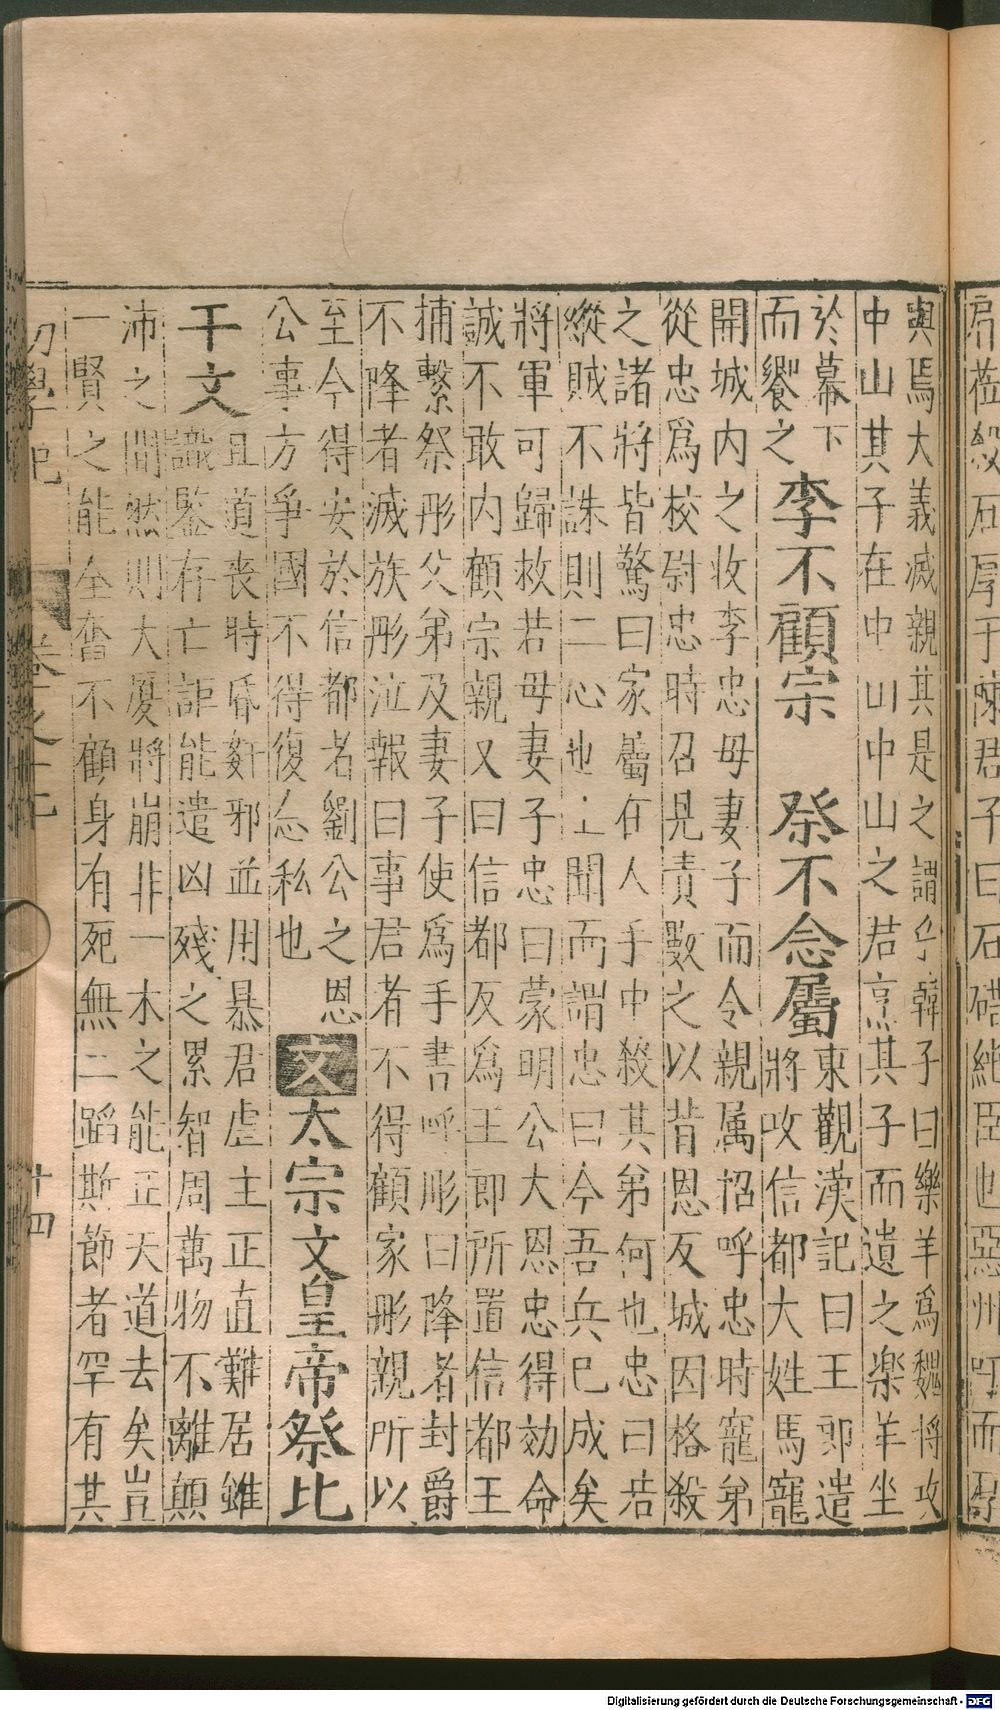 與焉大義滅親其是之謂乎韓子曰樂羊爲魏將攻
中山其子在中山中山之君烹其子而遺之樂羊坐
於幕下
而饗之
李不顧宗 祭不念屬
東觀漢記曰王郎遣
將攻信都大姓馬寵
開城内之收李忠母妻子而令親属招呼忠時寵弟
從忠爲校尉忠時召見責數之以背恩反城因格殺
之諸將皆驚曰家屬在人手中殺其弟何也忠曰若
縱賊不誅則二心也上聞而謂忠曰今吾兵已成矣
將軍可歸救若母妻子忠曰蒙明公大恩忠得効命
誠不敢内顧宗親又曰信都反爲王郎所置信都王
捕繫祭肜父弟及妻子使爲手書呼肜曰降者封爵
不降者滅族肜泣報曰事君者不得顧家肜親所以
至今得安於信都者劉公之恩
公事方爭國不得復念私也
文太宗文皇帝祭比
干文
且道喪時昏姧邪並用暴君虐主正直難居雖
識鑒存亡詎能遣凶殘之累智周萬物不離顛
沛之間然則大厦將崩非一木之能正天道去矣豈
一賢之能全奮不顧身有死無二蹈斯節者罕有其
初學記
卷之十七
十四
君莅殺石厚于陳君子曰石碏純臣也惡州吁而厚
Digitalisierung gefördert durch die Deutsche Forschungsgemeinschaft - DFG